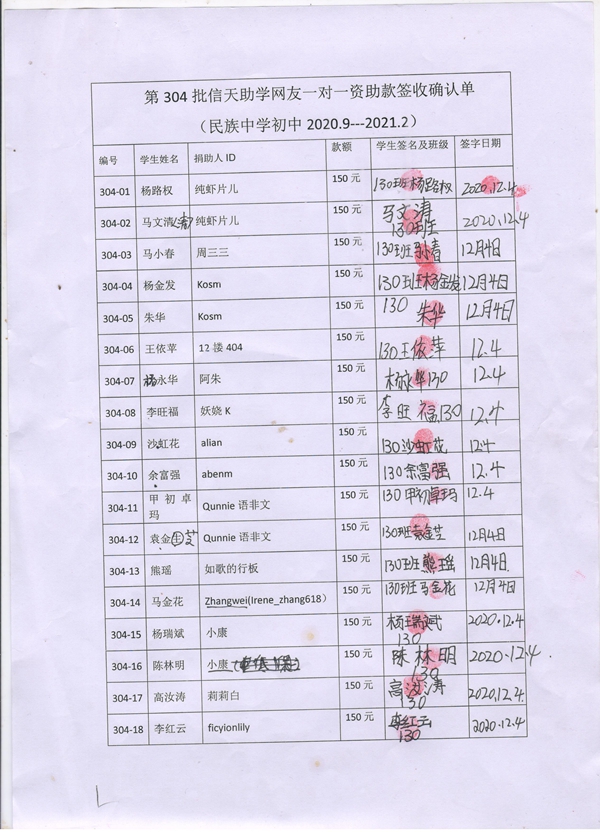 第 304 批信天助学网友一对一资助款签收确认单
（民族中学初中 2020.9---2021.2）
编号 学生姓名 捐助人 ID 款额 学生签名及班级 签字日期
304-01 杨路权 纯虾片儿 150 元 130班杨路权 2020.12.4
304-02 马文清(涛) 纯虾片儿 150 元 马文涛 2020.12.4
130班
304-03 马小春 周三三 150 元 130班马小春 12月4日
304-04 杨金发 Kosm 150 元 130班杨金发 12月4日
304-05 朱华 Kosm 150 元 130 朱华 12月4日
304-06 王依苹 12 搂 404 150 元 130王依苹 12.4
304-07 杨永华 阿朱 150 元 杨永华130 12.4
304-08 李旺福 妖娆 K 150 元 李旺福130 12.4
304-09 沙虹花 alian 150 元 130沙虹花 12.4
304-10 余富强 abenm 150 元 130余富强 12.4
304-11 甲初卓 Qunnie 语非文 150 元 130甲初卓玛 12.4
玛
304-12 袁金芝 Qunnie 语非文 150 元 130班袁金芝 12月4日
304-13 熊瑶 如歌的行板 150 元 130班熊瑶 12月4日
304-14 马金花 Zhangwei(Irene_zhang618） 150 元 130班马金花 12月4日
304-15 杨瑞斌 小康 150 元 杨瑞斌 2020.12.4
130
304-16 陈林明 小康 150 元 陈林明 2020.12.4.
130
304-17 高汝涛 莉莉白 150 元 高汝涛 2020.12.4.
130
304-18 李红云 ficyionlily 150 元 李红云 2020.12.4
130